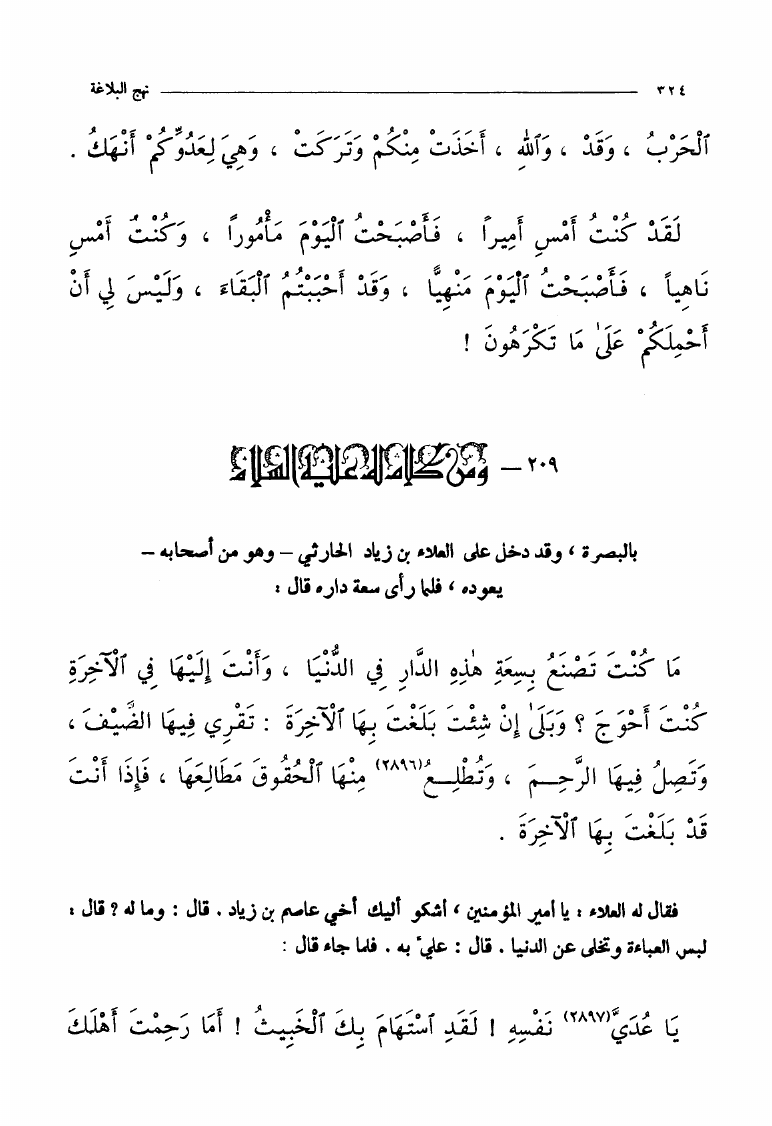 ٣٢٤ نهج البلاغة
ٱلْحَرْبُ ، وَقَدْ ، وَٱللهِ ، أَخَذَتْ مِنْكُمْ وَتَرَكَتْ ، وَهِيَ لِعَدُوِّكُمْ أَنْهَكُ .
لَقَدْ كُنْتُ أَمْسِ أَمِيراً ، فَأَصْبَحْتُ ٱلْيَوْمَ مَأْمُوراً ، وَكُنْتُ أَمْسِ
نَاهِياً ، فَأَصْبَحْتُ ٱلْيَوْمَ مَنْهِيًّا ، وَقَدْ أَحْبَبْتُمُ ٱلْبَقَاءَ ، وَلَيْسَ لِي أَنْ
أَحْمِلَكُمْ عَلَىٰ مَا تَكْرَهُونَ !
٢٠٩ – ومن كلام له عليه السلام
بالبصرة ، وقد دخل على العلاء بن زياد الحارثي – وهو من أصحابه –
يعوده ، فلما رأى سعة داره قال :
مَا كُنْتَ تَصْنَعُ بِسِعَةِ هٰذِهِ الدَّارِ فِي الدُّنْيَا ، وَأَنْتَ إِلَيْهَا فِي ٱلْآخِرَةِ
كُنْتَ أَحْوَجَ ؟ وَبَلَىٰ إِنْ شِئْتَ بَلَغْتَ بِهَا ٱلْآخِرَةَ : تَقْرِي فِيهَا الضَّيْفَ ،
وَتَصِلُ فِيهَا الرَّحِـمَ ، وَتُطْلِـعُ(٢٨٩٦) مِنْهَا ٱلْحُقُوقَ مَطَالِعَهَا ، فَإِذَا أَنْتَ
قَدْ بَلَغْتَ بِهَا ٱلْآخِرَةَ .
فقال له العلاء : يا أمير المؤمنين ، أشكو أليك أخي عاصم بن زياد . قال : وما له ؟ قال :
لبس العباءة وتخلى عن الدنيا . قال : عليّ به . فلما جاء قال :
يَا عُدَيَّ(٢٨٩٧) نَفْسِهِ ! لَقَدِ ٱسْتَهَامَ بِكَ ٱلْخَبِيثُ ! أَمَا رَحِمْتَ أَهْلَكَ